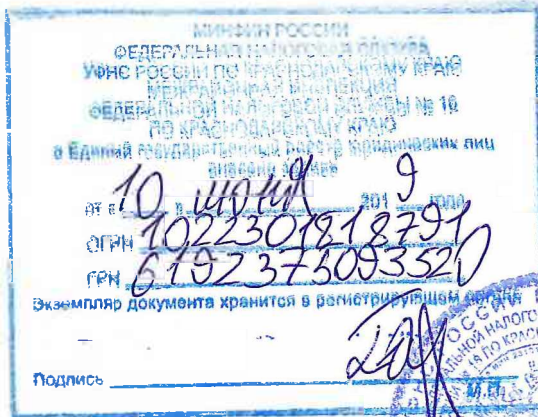 МИНФИН РОССИИ
ФЕДЕРАЛЬНАЯ НАЛОГОВАЯ СЛУЖБА
УФНС РОССИИ ПО КРАСНОДАРСКОМУ КРАЮ
МЕЖРАЙОННАЯ ИНСПЕКЦИЯ
ФЕДЕРАЛЬНОЙ НАЛОГОВОЙ СЛУЖБЫ № 16
ПО КРАСНОДАРСКОМУ КРАЮ
в Единый государственный реестр юридических лиц
внесена запись
от « 10 » июня 201 9 года
ОГРН 1022301818791
ГРН 6192375093520
Экземпляр документа хранится в регистрирующем органе
Подпись
М.П.